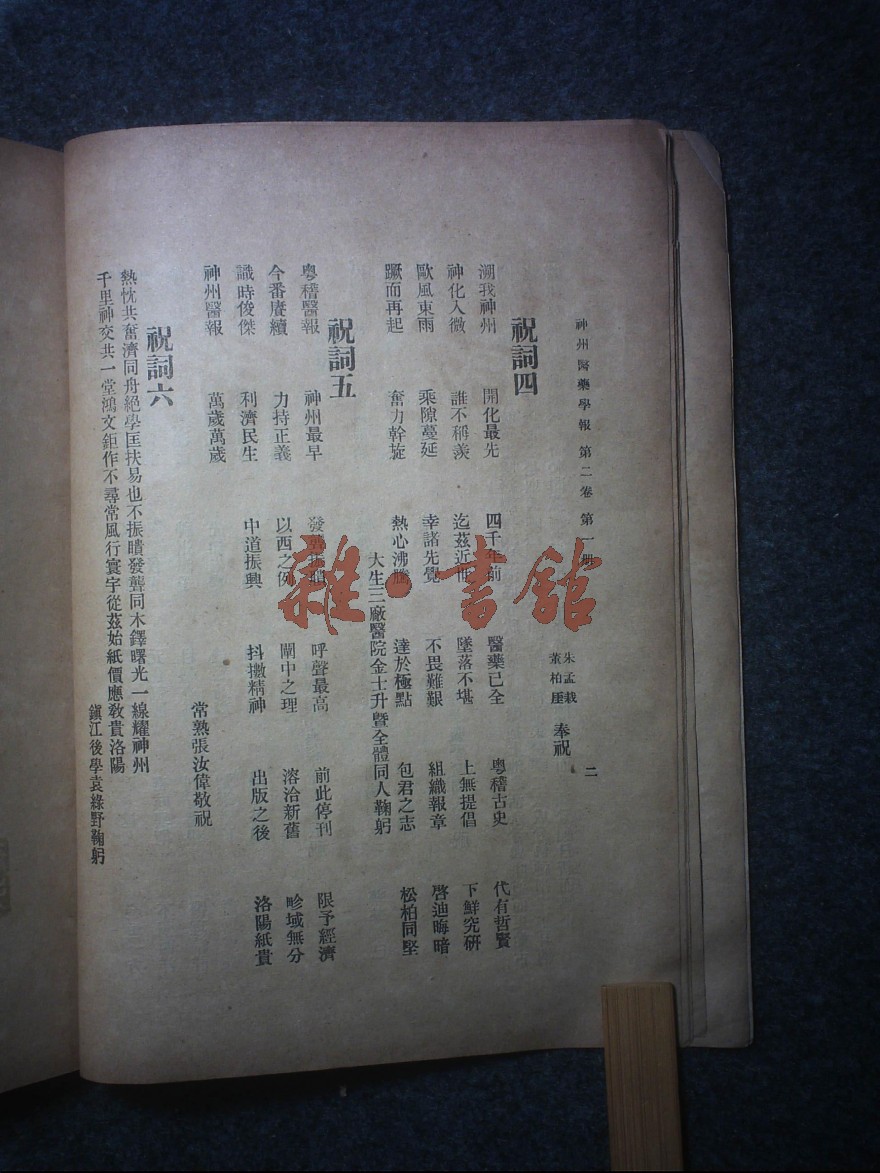 神州醫藥學報 第二卷 第一册 二
朱孟栽
董柏厓 奉祝
祝詞四
溯我神州 開化最先 四千年前 醫藥已全 粵稽古史 代有哲賢
神化入微 誰不稱羨 迄茲近世 墜落不堪 上無提倡 下鮮究研
歐風東雨 乘隙蔓延 幸諸先覺 不畏難艱 組織報章 啓迪晦暗
蹶而再起 奮力幹旋 熱心沸騰 達於極點 包君之志 松柏同堅
大生三廠醫院金士升暨全體同人鞠躬
祝詞五
粵稽醫報 神州最早 發聾振聵 呼聲最高 前此停刊 限予經濟
今番賡續 力持正義 以西之例 闡中之理 溶洽新舊 畛域無分
識時俊傑 利濟民生 中道振興 抖擻精神 出版之後 洛陽紙貴
神州醫報 萬歲萬歲
常熟張汝偉敬祝
祝詞六
熱忱共奮濟同舟絕學匡扶易也不振聵發聾同木鐸曙光一線耀神州
千里神交共一堂鴻文鉅作不尋常風行寰宇從茲始紙價應教貴洛陽
鎭江後學袁綠野鞠躬
雜·書館